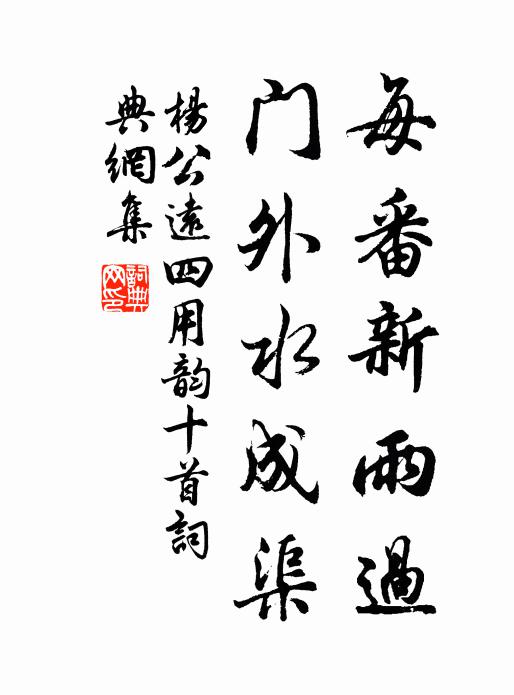 每番新雨過
门外水成渠
楊公遠四用韵十首詞
典網集
詞典网印